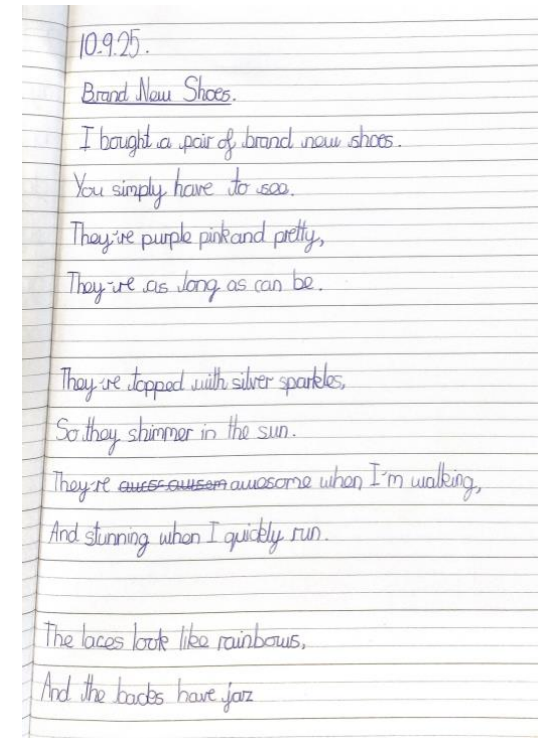 10.9.25.
Brand New Shoes.
I bought a pair of brand new shoes.
You simply have to see.
They're purple pink and pretty,
They're as long as can be.
They're topped with silver sparkles,
So they shimmer in the sun.
They're awesome when I'm walking,
And stunning when I quickly run.
The laces look like rainbows,
And the backs have jaz